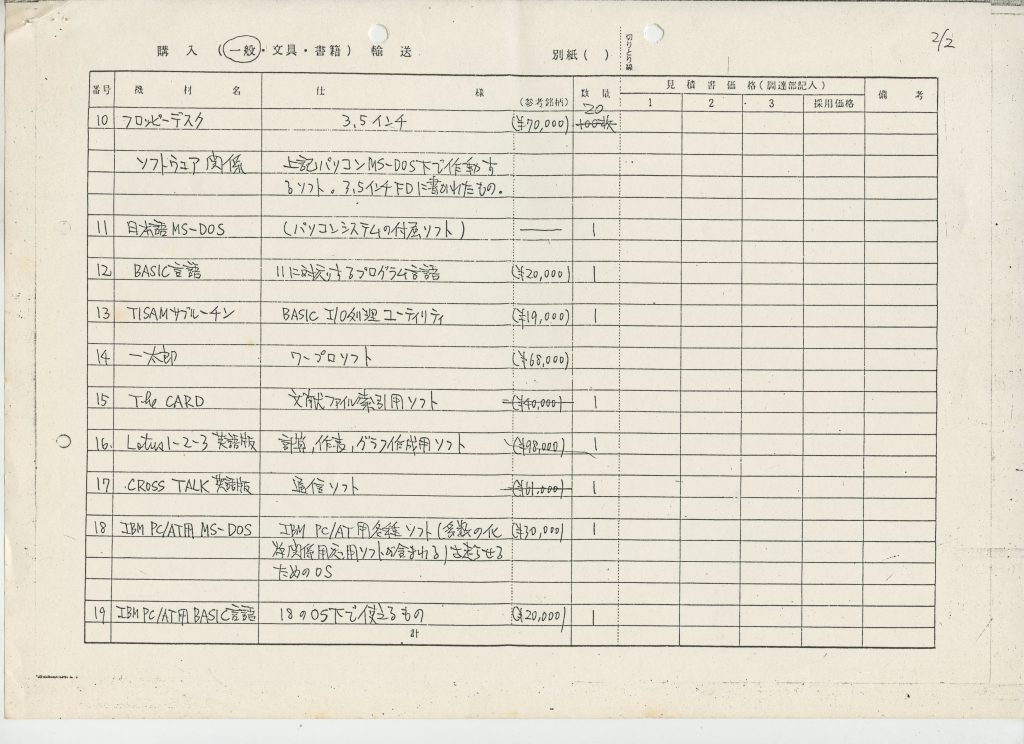 2/2
購入 (一般・文具・書籍) 輸送 別紙( ) 切りとり線
番号 機材名 仕様 (参考銘柄) 数量 見積書価格(調達部記入) 備考
1 2 3 採用価格
10 フロッピーデスク 3.5インチ (¥70,000) 20 100枚
ソフトウェア関係 上記パソコンMS-DOS下で作動す
るソフト。3.5インチFDに書かれたもの。
11 日本語MS-DOS (パソコンシステムの付属ソフト) — 1
12. BASIC言語 11に対応するプログラム言語 (¥20,000) 1
13 TISAMサブルーチン BASIC I/O処理ユーティリティ (¥19,000) 1
14 一太郎 ワープロソフト (¥68,000) 1
15 The CARD 文献ファイル索引用ソフト (¥40,000) 1
16. Lotus1-2-3 英語版 計算,作表,グラフ作成用ソフト (¥98,000) 1
17 CROSS TALK 英語版 通信ソフト (¥61,000) 1
18 IBM PC/AT用 MS-DOS IBM PC/AT用各種ソフト(多数の化
学関係用応用ソフトが含まれる)を走らせる
ためのOS (¥30,000) 1
19 IBM PC/AT用 BASIC言語 18のOS下で使えるもの (¥20,000) 1
計